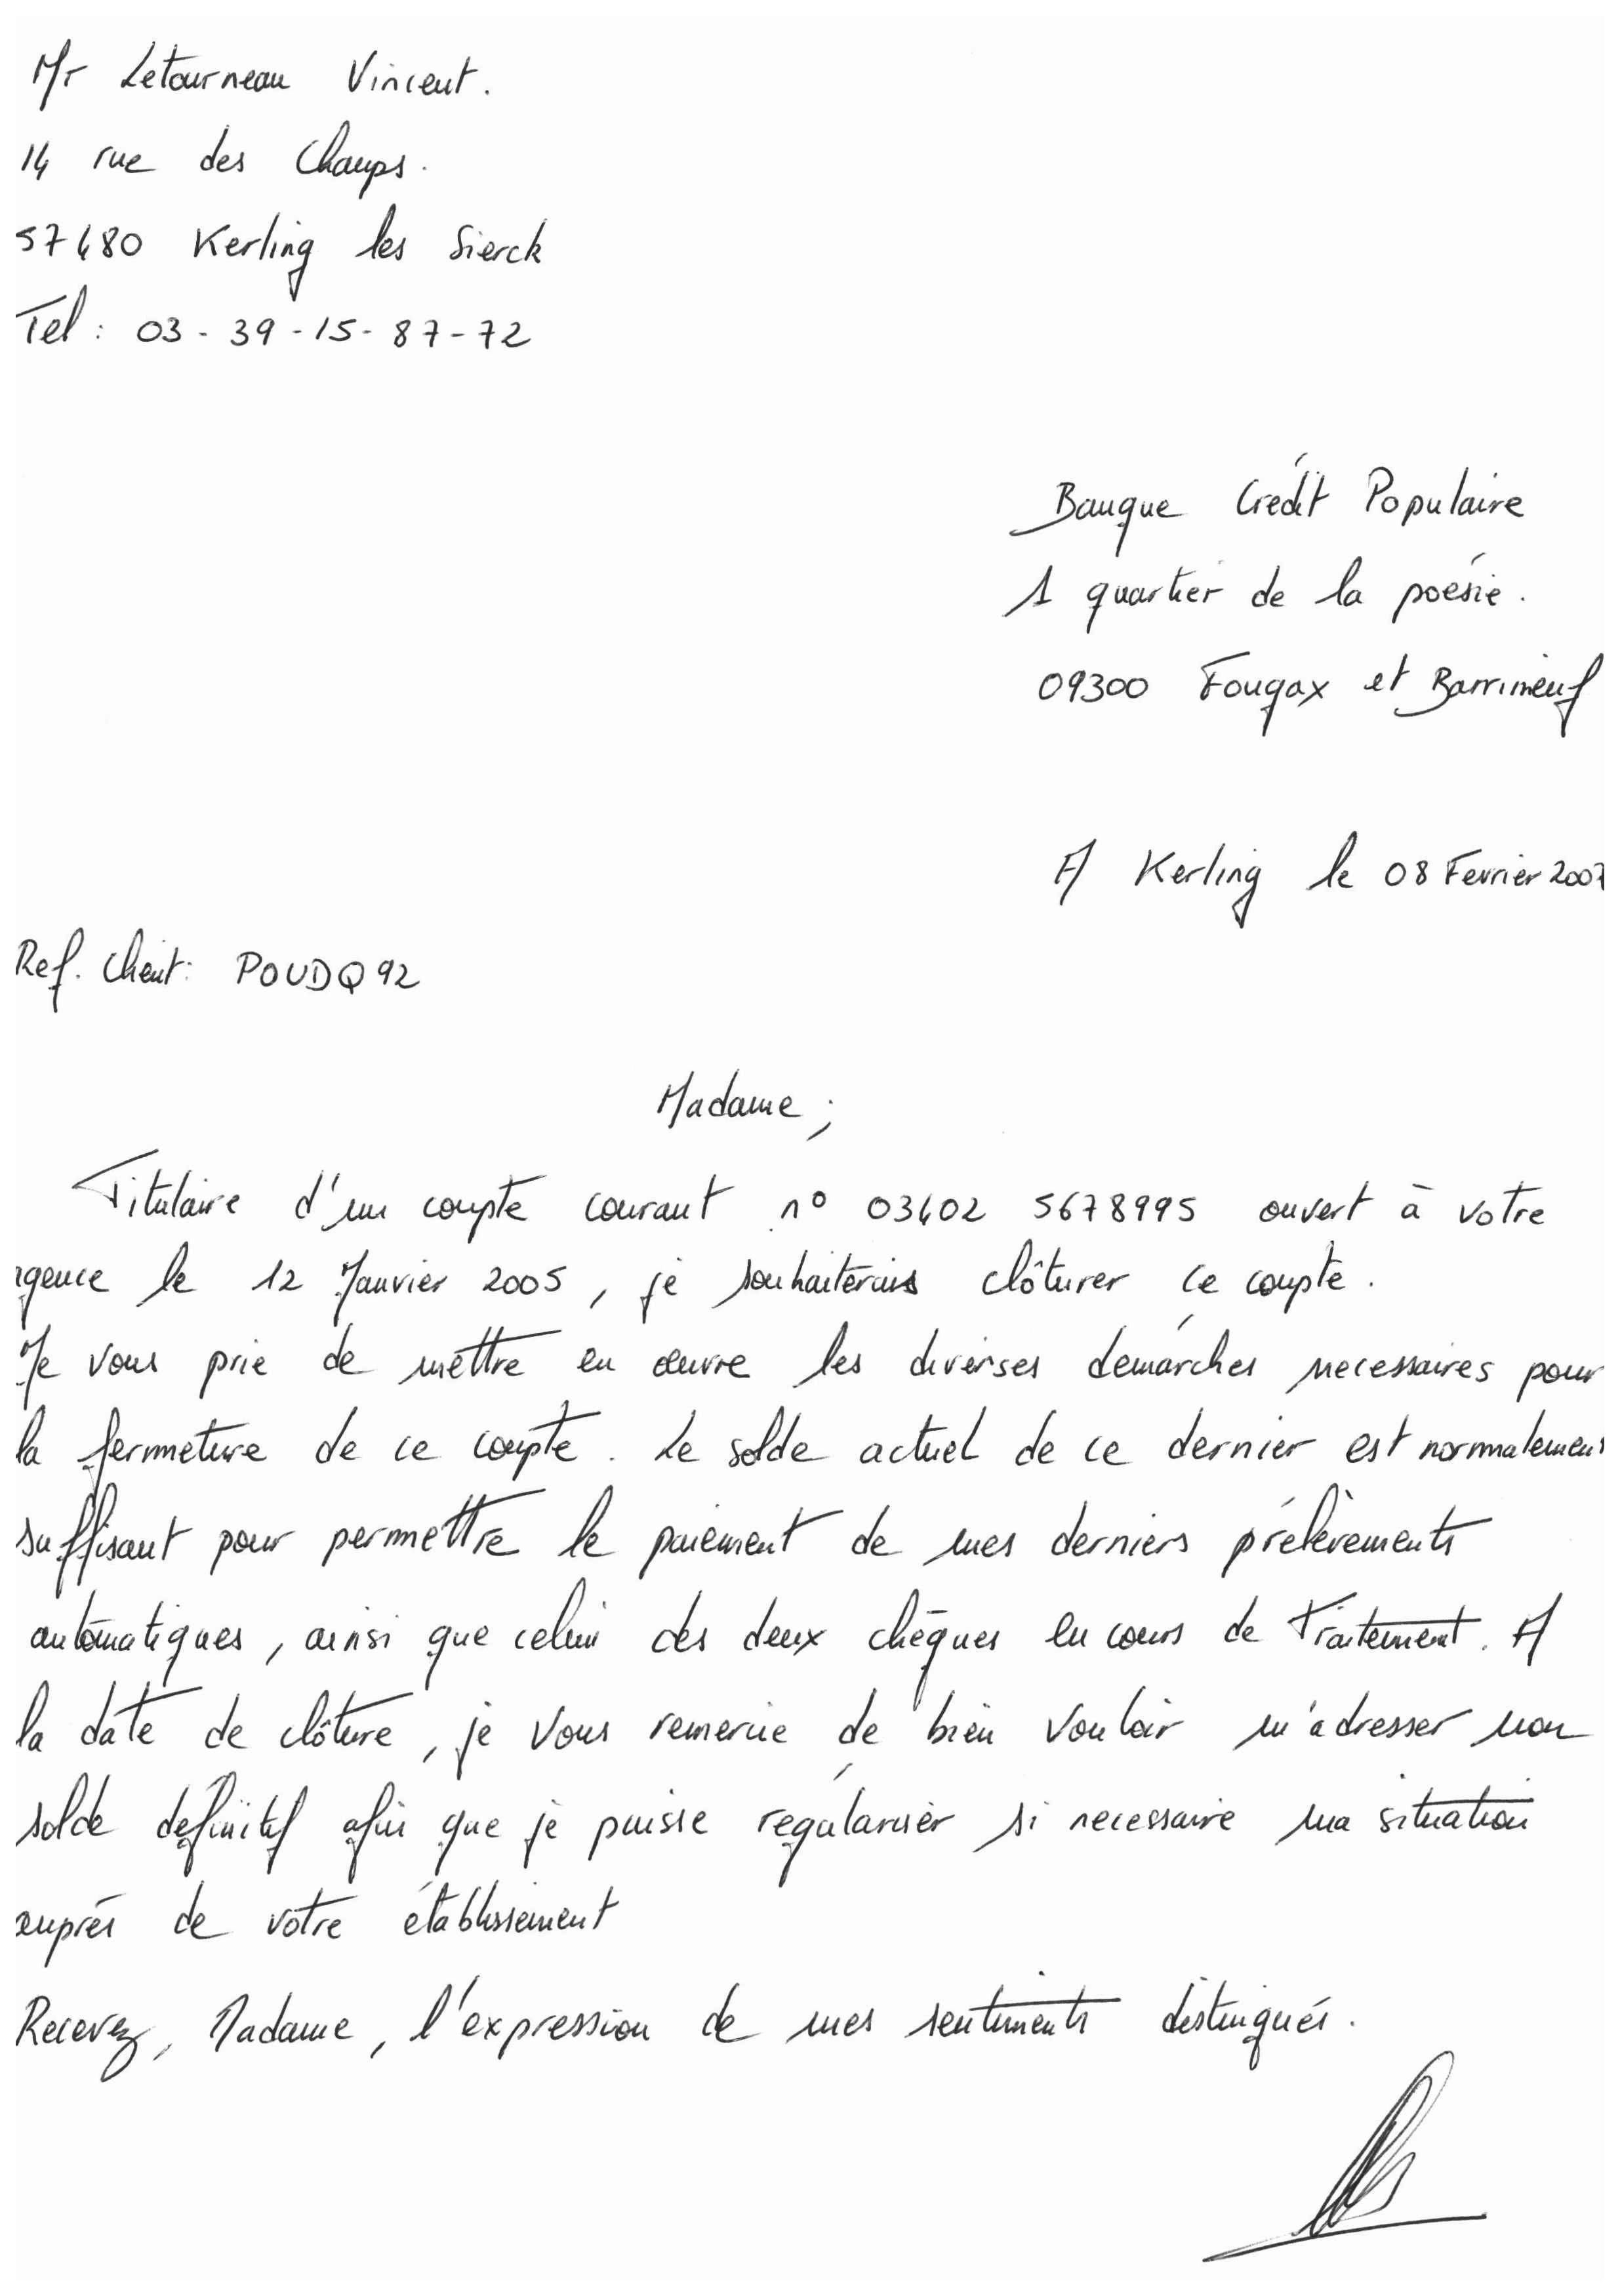 Mr Letourneau Vincent.
14 rue des Champs.
57480 Kerling les Sierck
Tel : 03 - 39 - 15 - 87 - 72
Banque Crédit Populaire
1 quartier de la poésie.
09300 Fougax et Barrineuf
A Kerling le 08 Fevrier 2007
Ref. Client : POUDQ92
Madame ;
Titulaire d'un compte courant n° 03402 5678995 ouvert à votre
agence le 12 Janvier 2005, je souhaiterais clôturer ce compte.
Je vous prie de mettre en œuvre les diverses démarches necessaires pour
la fermeture de ce compte. Le solde actuel de ce dernier est normalement
suffisant pour permettre le paiement de mes derniers prélèvements
automatiques, ainsi que celui des deux chèques en cours de Traitement. A
la date de clôture, je vous remercie de bien vouloir m'adresser mon
solde definitif afin que je puisse régulariser si necessaire ma situation
auprés de votre établissement
Recevez, Madame, l'expression de mes sentiments distingués.